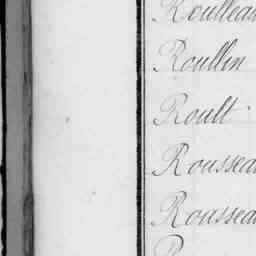 Roulleau
Roullin
Roult
Roussea
Roussea